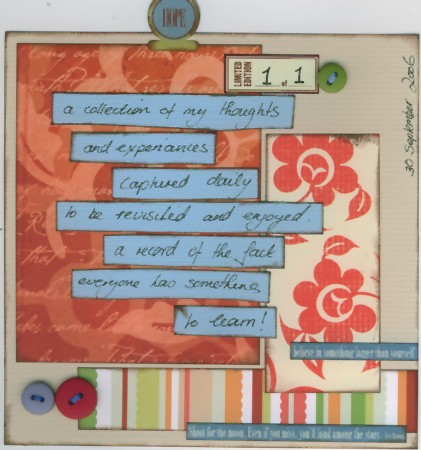 HOPE
LIMITED EDITION 1 of 1
30 September 2006
a collection of my thoughts
and experiances
captured daily
to be revisited and enjoyed.
a record of the fact
everyone has something
to learn!
believe in something larger than yourself
Shoot for the moon. Even if you miss, you'll land among the stars.